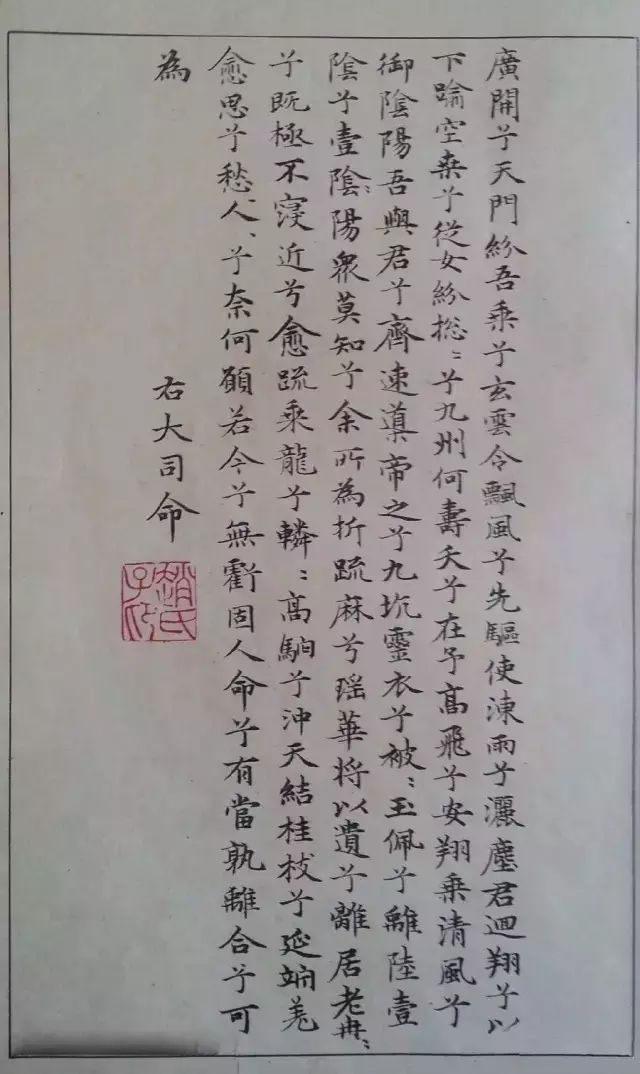 廣開兮天門紛吾乘兮玄雲令飄風兮先驅使涷雨兮灑塵君迴翔兮以
下踰空桒兮從女紛揔〻兮九州何壽夭兮在予高飛兮安翔乘清風兮
御陰陽吾與君兮齊速導帝之兮九坑靈衣兮被〻玉佩兮離陸壹
陰兮壹陰〻陽眾莫知兮余所為折疏麻兮瑶華将以遺兮離居老冉〻
兮既極不寖近兮愈疏乘龍兮轔〻高駝兮沖天結桂枝兮延竚羌
愈思兮愁人〻兮奈何願若今兮無虧固人命兮有當孰離合兮可
為
右大司命
趙氏子昂